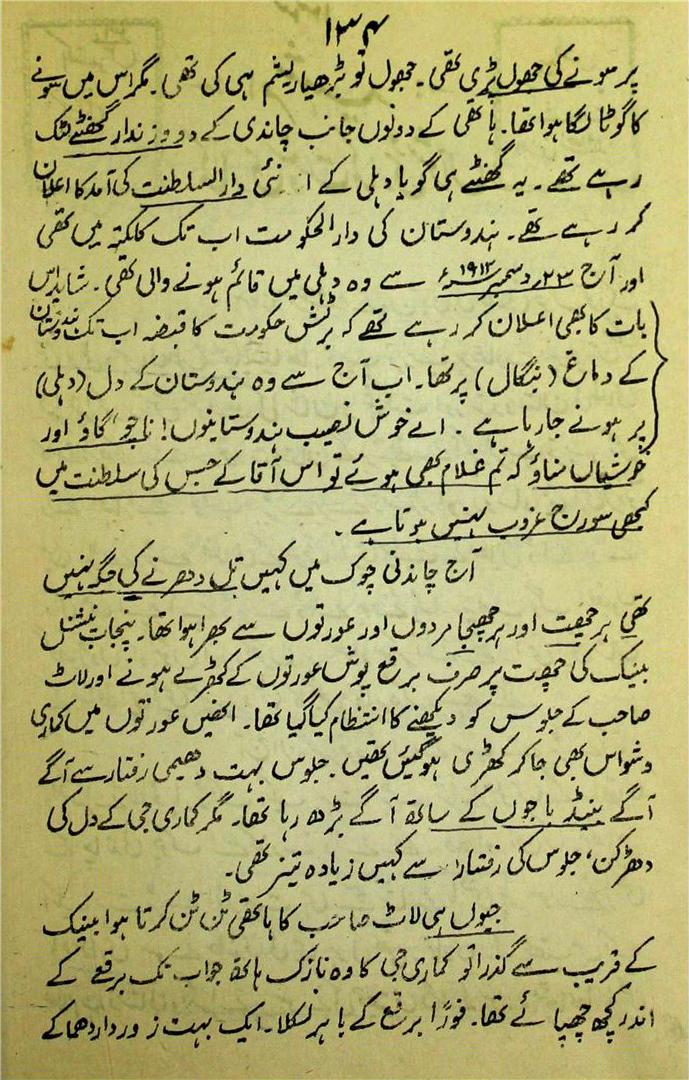 ۱۳۴
پر سونے کی جھول پڑی تھی۔ جھول تو بڑھیا ریشم ہی کی تھی۔ مگر اس میں سونے
کا گوٹا لگا ہوا تھا۔ ہاتھی کے دونوں جانب چاندی کے دو وزندار گھنٹے لٹک
رہے تھے۔ یہ گھنٹے ہی گویا دہلی کے ا نئی دار السلطنت کی آمد کا اعلان
کر رہے تھے۔ ہندوستان کی دارالحکومت اب تک کلکتہ میں تھی
اور آج ۲۳ دسمبر ۱۹۱۲ء سے وہ دہلی میں قائم ہونے والی تھی۔ شاید اس
بات کا بھی اعلان کر رہے تھے کہ برٹش حکومت کا قبضہ اب تک ہندوستان
کے دماغ (بنگال) پر تھا۔ اب آج سے وہ ہندوستان کے دل (دہلی)
پر ہونے جا رہا ہے۔ اے خوش نصیب ہندوستانیوں! ناچو' گاؤ اور
خوشیاں مناؤ کہ تم غلام بھی ہوئے تو اس آقا کے جس کی سلطنت میں
کبھی سورج غروب نہیں ہوتا ہے۔
آج چاندنی چوک میں کہیں تل دھرنے کی جگہ نہیں
تھی ہر چھت اور ہر چھجا مردوں اور عورتوں سے بھرا ہوا تھا۔ پنجاب نیشنل
بینک کی چھت پر صرف برقع پوش عورتوں کے کھڑے ہونے اور لاٹ
صاحب کے جلوس کو دیکھنے کا انتظام کیا گیا تھا۔ انھیں عورتوں میں کماری
وشواس بھی جا کر کھڑی ہو گئیں تھیں۔ جلوس بہت دھیمی رفتار سے آگے
آگے بینڈ باجوں کے ساتھ آگے بڑھ رہا تھا۔ مگر کماری جی کے دل کی
دھڑکن' جلوس کی رفتار سے کہیں زیادہ تیز تھی۔
جیوں ہی لاٹ صاحب کا ہاتھی ٹن ٹن کرتا ہوا بینک
کے قریب سے گذرا تو کماری جی کا وہ نازک ہاتھ جو اب تک برقعے کے
اندر کچھ چھپائے تھا۔ فوراً برقع کے باہر نکلا۔ ایک بہت زوردار دھماکے